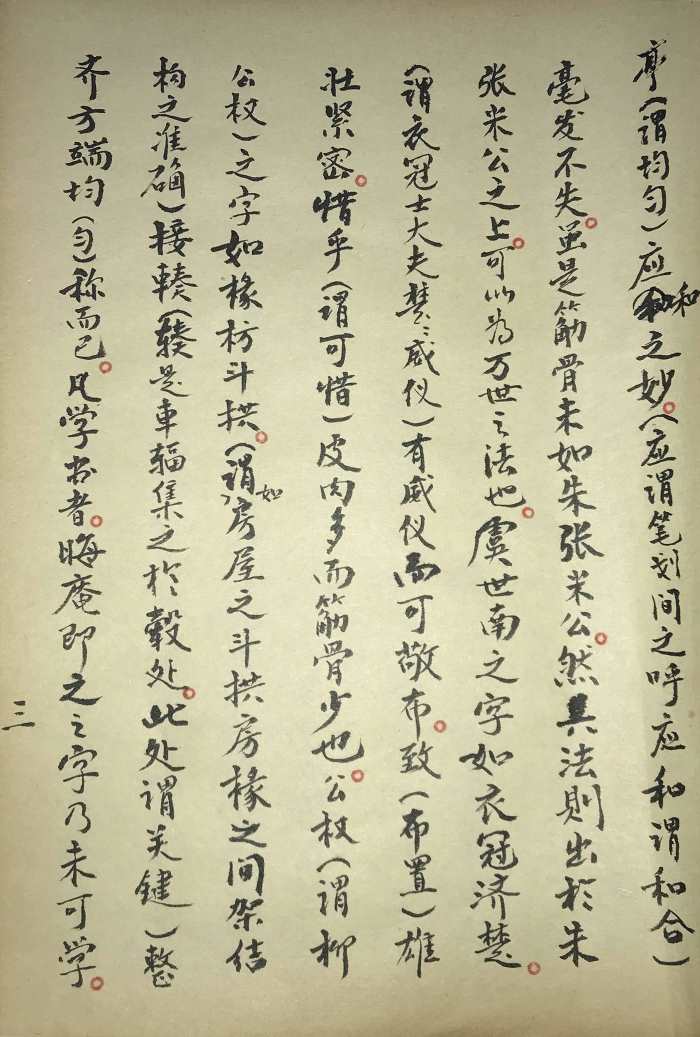 亭（谓均匀）应和之妙。（应谓笔划间之呼应和谓和合）
毫发不失。虽是筋骨未如朱张米公。然其法则出於朱
张米公之上。可以为万世之法也。虞世南之字如衣冠济楚。
（谓衣冠士大夫楚楚威仪）有威仪而可敬布。致（布置）雄
壮紧密。惜乎（谓可惜）皮肉多而筋骨少也。公权（谓柳
公权）之字如椽枋斗拱。（谓如房屋之斗拱房椽之间架结
构之准确）接辏（辏是车辐集之於毂处。此处谓关键）整
齐方端均（匀）称而已。凡学书者。晦庵即之之字乃未可学。
三